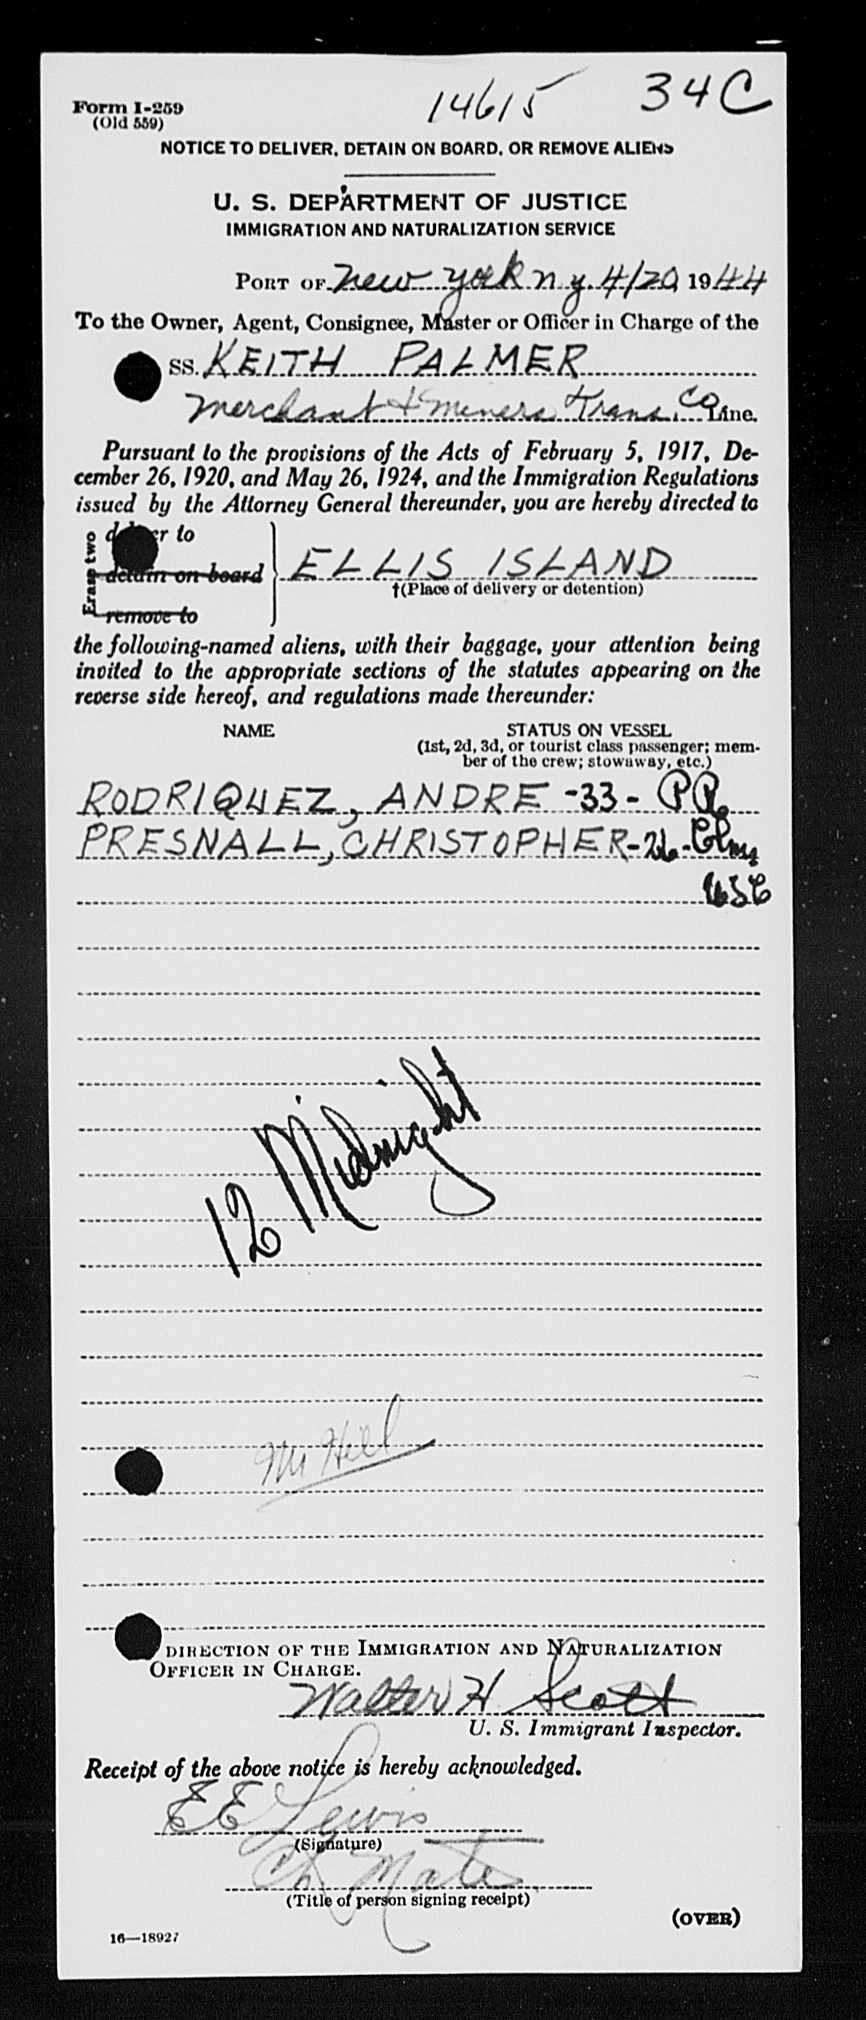 Form I-259
(Old 559)
14615 34C
NOTICE TO DELIVER, DETAIN ON BOARD, OR REMOVE ALIENS
U. S. DEPARTMENT OF JUSTICE
IMMIGRATION AND NATURALIZATION SERVICE
PORT OF New York N.Y. 4/20, 1944
To the Owner, Agent, Consignee, Master or Officer in Charge of the
SS. KEITH PALMER
Merchant & Miners Trans. Co Line.
Pursuant to the provisions of the Acts of February 5, 1917, De-
cember 26, 1920, and May 26, 1924, and the Immigration Regulations
issued by the Attorney General thereunder, you are hereby directed to
Erase two
deliver to
detain on board
remove to
ELLIS ISLAND
†(Place of delivery or detention)
the following-named aliens, with their baggage, your attention being
invited to the appropriate sections of the statutes appearing on the
reverse side hereof, and regulations made thereunder:
NAME STATUS ON VESSEL
(1st, 2d, 3d, or tourist class passenger; mem-
ber of the crew; stowaway, etc.)
RODRIQUEZ, ANDRE -33- PR
PRESNALL, CHRISTOPHER-26-Clmg
USC
12 Midnight
Mr Hill
DIRECTION OF THE IMMIGRATION AND NATURALIZATION
OFFICER IN CHARGE.
Walter H Scott
U. S. Immigrant Inspector.
Receipt of the above notice is hereby acknowledged.
E E Lewis
(Signature)
Ch Mate
(Title of person signing receipt)
(OVER)
16—18927